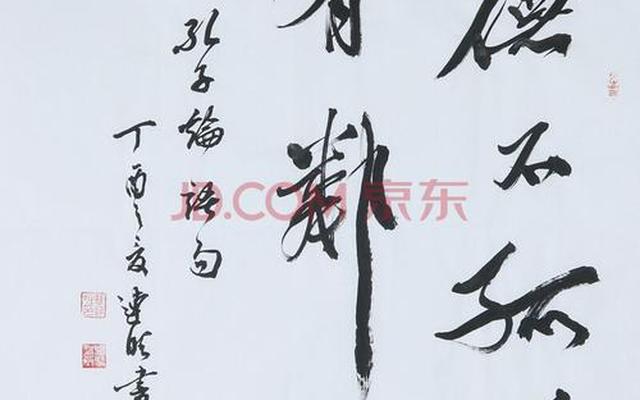 德不孤
有鄰
孔子論語句
丁酉之夏連書
JD.COM 京东